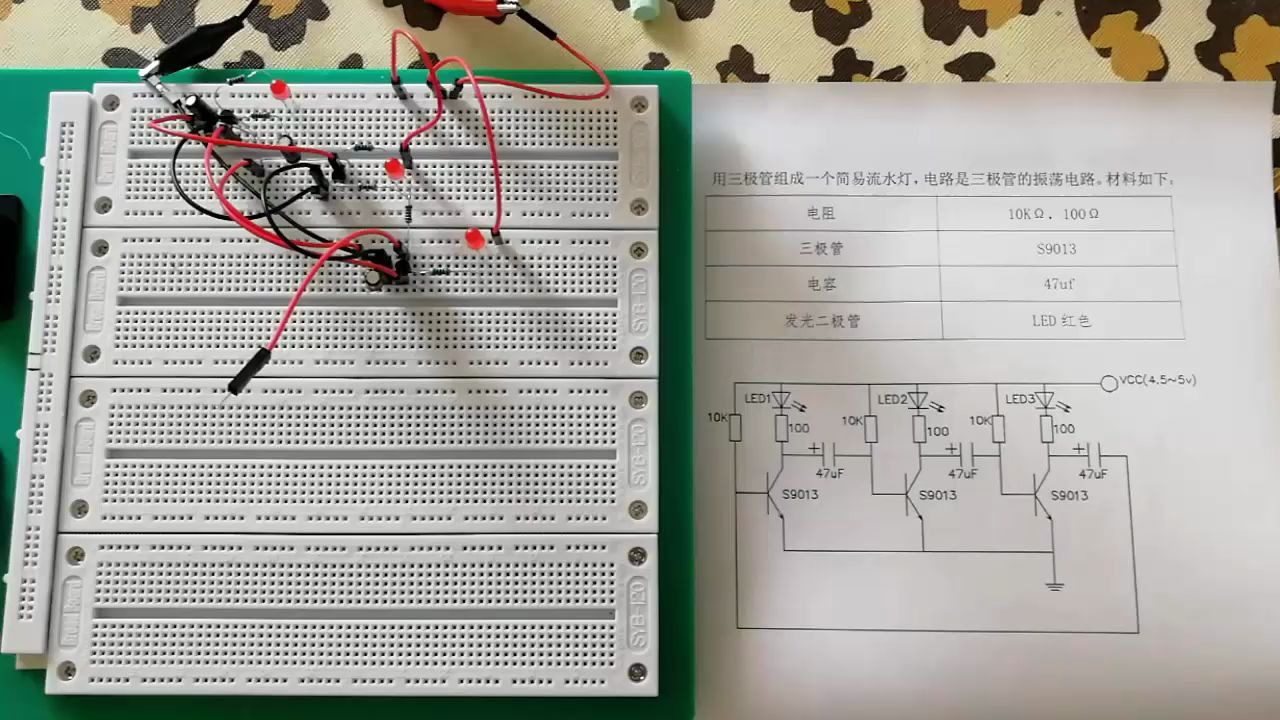 用三极管组成一个简易流水灯，电路是三极管的振荡电路。材料如下：
电阻 10KΩ，100Ω
三极管 S9013
电容 47uf
发光二极管 LED 红色
VCC(4.5~5v)
LED1 LED2 LED3
10K 100 10K 100 10K 100
47uF 47uF 47uF
S9013 S9013 S9013
SYB-120
SYB-120
SYB-120
SYB-120